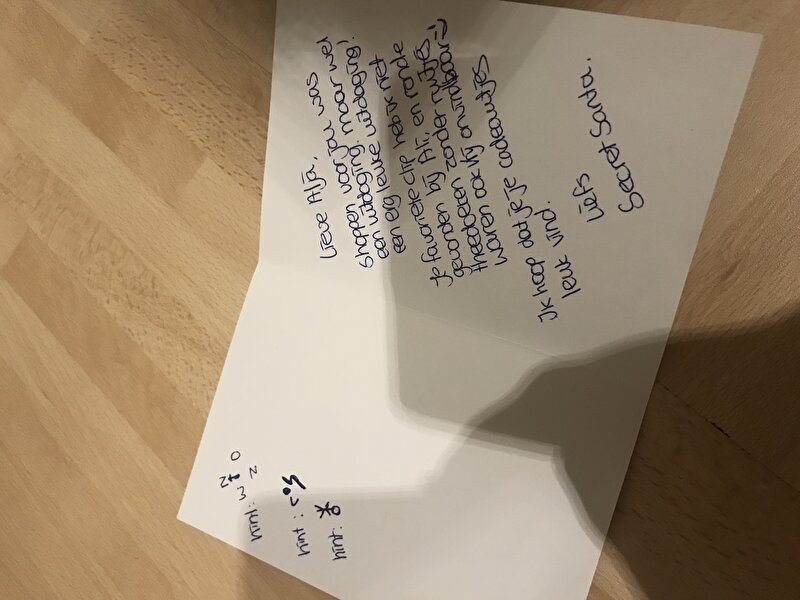 Lieve Alja,
shoppen voor jou was
een uitdaging maar wel
een erg leuke uitdaging!
Je favoriete clip heb ik niet
gevonden bij Ali, en ronde
theedoeken zonder muntjes
waren ook vrij onvindbaar =)
Ik hoop dat je je cadeautjes
leuk vind.
Liefs
Secret Santa.
hint: W N Z O
hint:
hint: